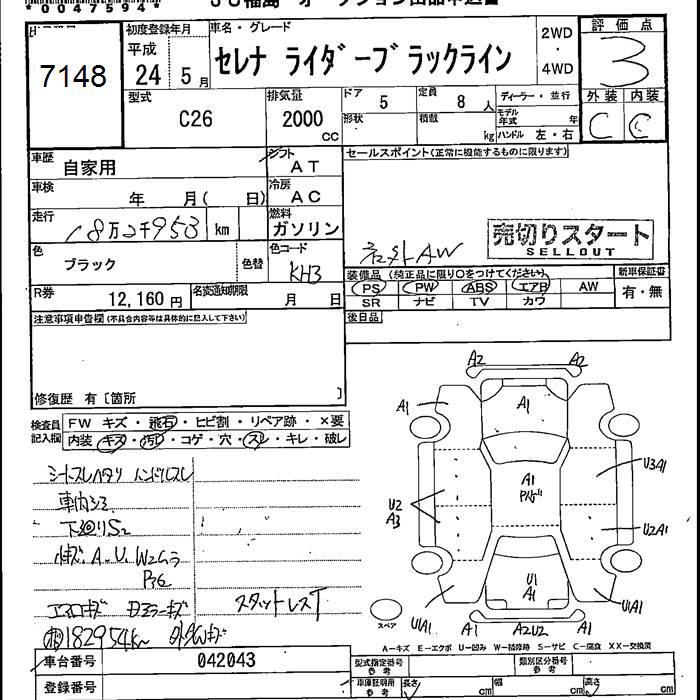 *00475944*
7148
初度登録年月
平成
24 5月
車名・グレード
セレナ ライダーブラックライン
2WD
・
4WD
評価点
3
外装 内装
C C
型式
C26
排気量
2000
cc
ドア
5
定員
8人
形状
積載
kg
ディーラー・並行
モデル年式 年
ハンドル 左・右
車歴
自家用
シフト
AT
車検
年 月( 日)
冷房
AC
走行
18万2千953 km
燃料
ガソリン
色
ブラック
色替
色コード
KH3
R券
12,160円
名変通知期限
月 日
セールスポイント(正常に機能するものに限ります)
社外AW
売切りスタート
SELLOUT
装備品(純正品に限り○をつけてください)
新車保証書
PS PW ABS エアB AW
SR ナビ TV カワ
有・無
後日品
注意事項申告欄(不具合内容等は具体的に記入して下さい)
修復歴 有〔箇所 〕
検査員記入欄
FW キズ・飛石・ヒビ割・リペア跡・×要
内装・キズ・汚れ・コゲ・穴・スレ・キレ・破レ
シートスレヘタリ ハンドルスレ
車内シミ
下廻りS2
小キズ.A.U.W2ムラ
エアロキズ ドアミラーキズ
スタットレスT
182954km
A2 A2
A1 A1
A1
U2
A3
U3A1
U2A1
U1
A1
U1A1 U1A1
A1 A2U2 A1
スペア
A-キズ E-エクボ U-凹み W-補修跡 S-サビ C-腐食 XX-交換済
車台番号
042043
登録番号
型式指定番号
参考
類別区分番号
参考
車庫証明用
参考
長さ cm 幅 cm 高さ cm